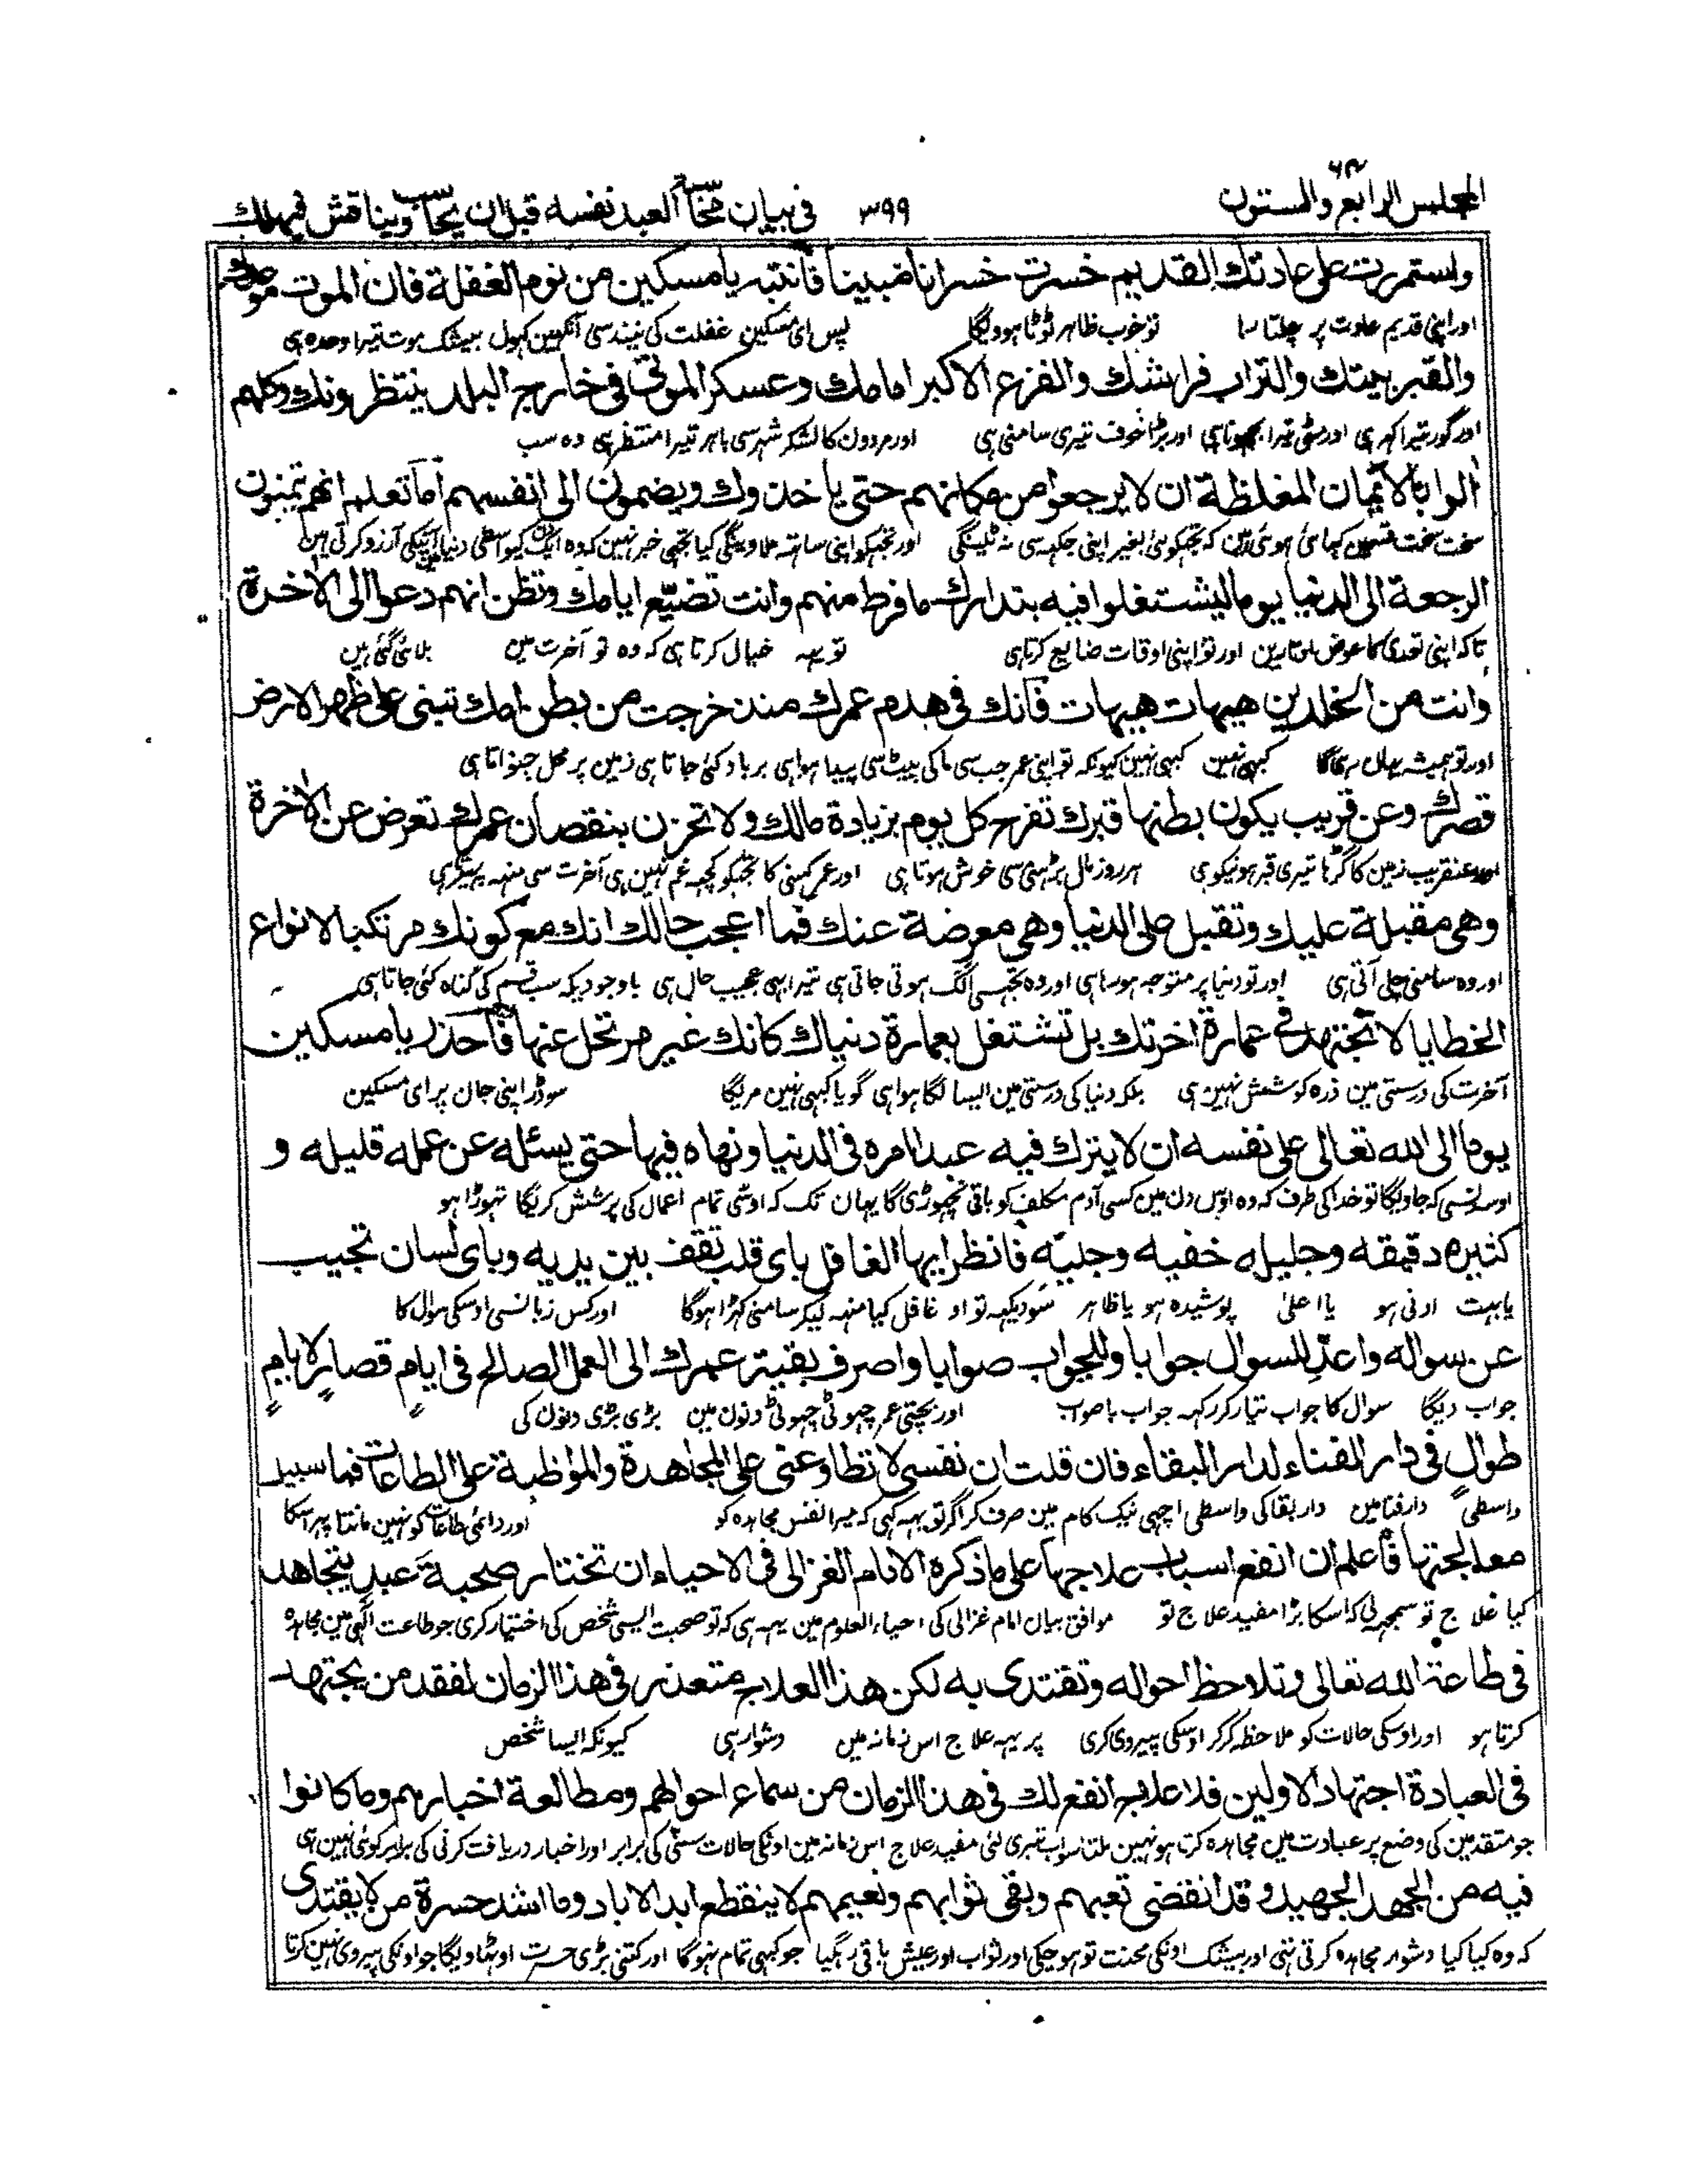 ٦٤
المجلس الرابع والستون
٣٩٩
في بيان محاسبة العبد نفسه قبل ان يحاسب ويناقش فيهلك
واستمررت على عادتك القديم خسرت خسرانا مبينا فانتبه يا مسكين من نوم الغفلة فان الموت موعدك
اور اپنی قدیم عادت پر چلتا رہا تو خوب ظاہر ٹوٹا ہوویگا پس ای مسکین غفلت کی نیند سی آنکہین کہول بیشک موت تیرا وعدہ ہی
والقبر بيتك والتراب فراشك والفزع الاكبر امامك وعسكر الموتى في خارج البلد ينتظرونك وكلهم
اور گور تیرا گہر ہی اور مٹی تیرا بچہونا ہی اور بڑا خوف تیری سامنی ہی اور مردون کا لشکر شہر سی باہر تیرا منتظر ہی وہ سب
الوا بالايمان المغلظة ان لا يرجعوا من مكانهم حتى ياخذوك ويضمون الى انفسهم اما تعلم انهم يتمنون
سخت سخت قسمین کہائی ہوئی ہین کہ تجہکو لئی بغیر اپنی جگہ سی نہ ٹلینگی اور تجہکو اپنی ساتہ ملاوینگی کیا تجہی خبر نہین کہ وہ ایک دن کیواسطی دنیا مین آنیکی آرزو کرتی ہین
الرجعة الى الدنيا يوما ليشتغلوا فيه بتدارك ما فرط منهم وانت تضيع ايامك وتظن انهم دعوا الى الاخرة
تاکہ اپنی تعدی کا عوض اوتارین اور تو اپنی اوقات ضایع کرتا ہی تو یہہ خیال کرتا ہی کہ وہ تو آخرت مین بلائی گئی ہین
وانت من المخلدين هيهات هيهات فانك في هدم عمرك منذ خرجت من بطن امك تبنى على ظهر الارض
اور تو ہمیشہ یہان رہیگا کبہی نہین کبہی نہین کیونکہ تو اپنی عمر جب سی ماکی پیٹ سی پیدا ہوا ہی برباد کئی جاتا ہی زمین پر محل چنواتا ہی
قصرك وعن قريب يكون بطنها قبرك تفرح كل يوم بزيادة مالك ولا تحزن بنقصان عمرك تعرض عن الاخرة
اور عنقریب زمین کا گڑہا تیری قبر ہونیکو ہی ہر روز مال بڑہنی سی خوش ہوتا ہی اور عمر کہٹنی کا تجہکو کچہہ غم نہین ہی آخرت سی منہہ پہیر
وهي مقبلة عليك وتقبل على الدنيا وهي معرضة عنك فما اعجب حالك انك مع كونك مرتكبا لانواع
اور وہ سامنی چلی آتی ہی اور تو دنیا پر متوجہ ہو رہا ہی اور وہ تجہسی الگ ہوتی جاتی ہی تیرا بہی عجیب حال ہی باوجودیکہ سب قسم کی گناہ کئی جاتا ہی
الخطايا لا تجتهد في عمارة اخرتك بل تشتغل بعمارة دنياك كانك غير مرتحل عنها فاحذر يا مسكين
آخرت کی درستی مین ذرہ کوشش نہین ہی بلکہ دنیا کی درستی مین ایسا لگا ہوا ہی گویا کبہی نہین مریگا سو ڈر اپنی جان پر ای مسکین
يوما الى الله تعالى على نفسه ان لا يترك فيه عبدا امره في الدنيا ونهاه فيها حتى يسئله عن عمله قليله و
اوس دنسی کہ جاویگا تو خدا کی طرف کہ وہ اوس دن مین کسی آدم مکلف کو باقی نچہوڑیگا یہان تک کہ اوسی تمام اعمال کی پرسش کریگا تہوڑا ہو
كثيره دقيقه وجليله خفيه وجليه فانظر ايها الغافل باى قلب تقف بين يديه وباى لسان تجيب
یا بہت ادنی ہو یا اعلیٰ پوشیدہ ہو یا ظاہر سو دیکہہ تو او غافل کیا منہہ لیکر سامنی کہڑا ہوگا اور کس زبانسی اوسکی سوال کا
عن سواله واعد للسوال جوابا وللجواب صوابا واصرف بقية عمرك الى العمل الصالح في ايام قصار لايام
جواب دیگا سوال کا جواب تیار کر رکہہ جواب باصواب اور بچتی عمر چہوٹی چہوٹی دنون مین بڑی بڑی دنون کی
طوال في دار الفناء لدار البقاء فان قلت ان نفسى لا تطاوعنى على المجاهدة والمواظبة على الطاعات فما سبيل
واسطی دار فنا مین دار بقا کی واسطی اچہی نیک کام مین صرف کر اگر تو یہہ کہی کہ میرا نفس مجاہدہ کو اور دائمی طاعات کو نہین مانتا پہر اسکا
معالجتها فاعلم ان انفع اسباب علاجها على ما ذكره الامام الغزالى في الاحياء ان تختار صحبة عبد يجاهد
کیا علاج تو سمجہہ لی کہ اسکا بڑا مفید علاج تو موافق بیان امام غزالی کی احیاء العلوم مین یہہ ہی کہ تو صحبت ایسی شخص کی اختیار کری جو طاعت الٰہی مین مجاہدہ
في طاعة الله تعالى وتلاحظ احواله وتقتدى به لكن هذا العلاج متعذر في هذا الزمان لفقد من يجتهد
کرتا ہو اور اوسکی حالات کو ملاحظہ کرکر اوسکی پیروی کری پر یہہ علاج اس زمانہ مین دشوار ہی کیونکہ ایسا شخص
في العبادة اجتهاد الاولين فلا علاج انفع لك في هذا الزمان من سماع احوالهم ومطالعة اخبارهم وما كانوا
جو متقدمین کی وضع پر عبادت مین مجاہدہ کرتا ہو نہین ملتا سو اب تیری لئی مفید علاج اس زمانہ مین اونکی حالات سننی کی برابر اور اخبار دریافت کرنی کی برابر کوئی نہین ہی
فيه من الجهد الجهيد وقد انقضى تعبهم وبقى ثوابهم ونعيمهم لا ينقطع ابد الاباد وما اشد حسرة من لا يقتدى
کہ وہ کیا کیا دشوار مجاہدہ کرتی تہی اور بیشک اونکی محنت تو ہوچکی اور ثواب اور عیش باقی رہگیا جو کبہی تمام نہوگا اور کتنی بڑی حسرت اوٹہاویگا جو اونکی پیروی نہین کرتا